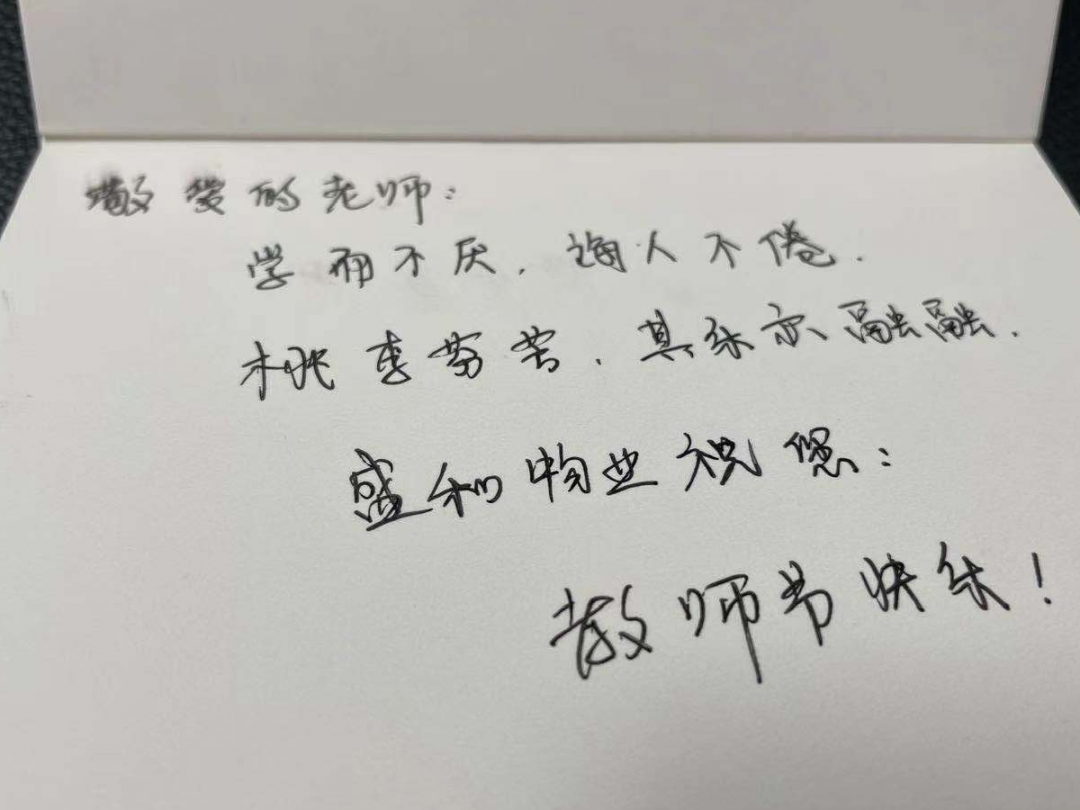 敬爱的老师：
学而不厌，诲人不倦．
桃李芬芳，其乐亦融融．
盛和物业祝您：
教师节快乐！